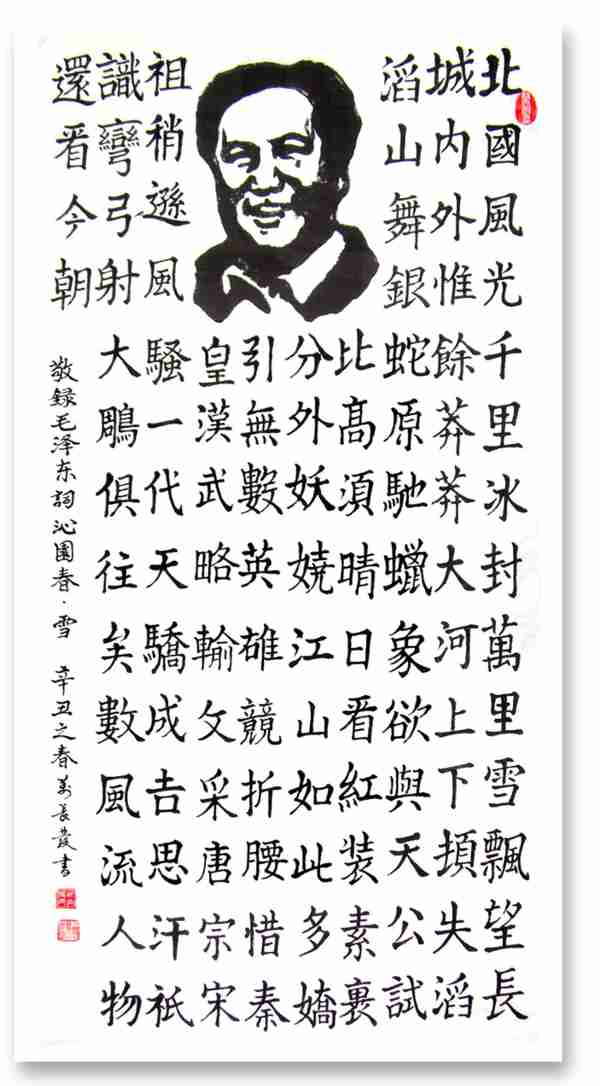 北國風光千里冰封萬里雪飄望長
城内外惟餘莽莽大河上下頓失滔
滔山舞銀蛇原馳蠟象欲與天公試
比高須晴日看紅装素裹
分外妖嬈江山如此多嬌
引無數英雄競折腰惜秦
皇漢武略輸文采唐宗宋
祖稍遜風騷一代天驕成吉思汗祇
識彎弓射大鵰俱往矣數風流人物
還看今朝
敬録毛泽东詞沁園春·雪 辛丑之春萬長發書